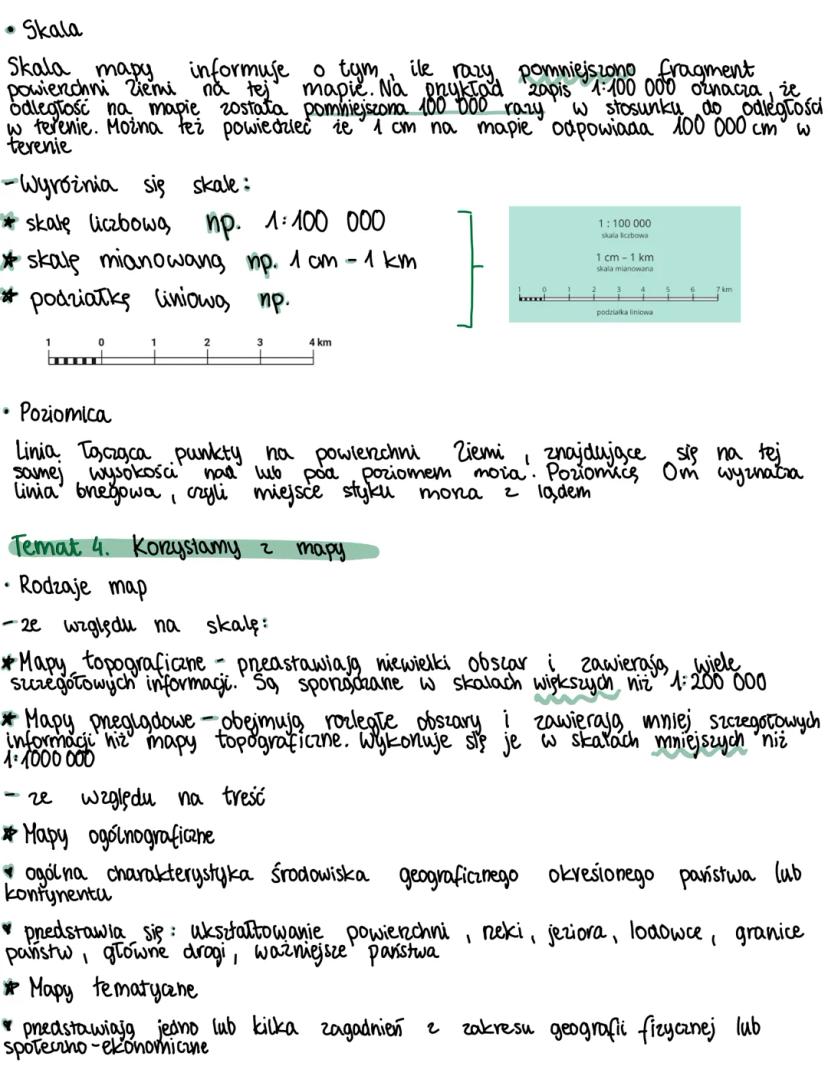 • Skala
Skala mapy informuje o tym, ile razy pomniejszono fragment
powierzchni Ziemi na tej mapie. Na przykład zapis 1:100 000 oznacza, że
odległość na mapie została pomniejszona 100 000 razy w stosunku do odległości
w terenie. Można też powiedzieć że 1 cm na mapie odpowiada 100 000 cm w
terenie
- Wyróżnia się skale:
* skalę liczbową np. 1:100 000
* skalę mianowaną np. 1 cm - 1 km
* podziałkę liniową np.
1 : 100 000
skala liczbowa
1 cm – 1 km
skala mianowana
1 0 1 2 3 4 5 6 7 km
podziałka liniowa
1 0 1 2 3 4 km
• Poziomica
Linia łącząca punkty na powierzchni Ziemi, znajdujące się na tej
samej wysokości nad lub pod poziomem morza. Poziomicę 0m wyznacza
linia brzegowa, czyli miejsce styku morza z lądem
Temat 4. Korzystamy z mapy
• Rodzaje map
- ze względu na skalę:
* Mapy topograficzne - przedstawiają niewielki obszar i zawierają wiele
szczegółowych informacji. Są sporządzane w skalach większych niż 1:200 000
* Mapy przeglądowe - obejmują rozległe obszary i zawierają mniej szczegółowych
informacji niż mapy topograficzne. Wykonuje się je w skalach mniejszych niż
1:1000 000
- ze względu na treść
* Mapy ogólnograficzne
▾ ogólna charakterystyka środowiska geograficznego określonego państwa lub
kontynentu
▾ przedstawia się: ukształtowanie powierzchni, rzeki, jeziora, lodowce, granice
państw, główne drogi, ważniejsze państwa
* Mapy tematyczne
▾ przedstawiają jedno lub kilka zagadnień z zakresu geografii fizycznej lub
społeczno-ekonomiczne